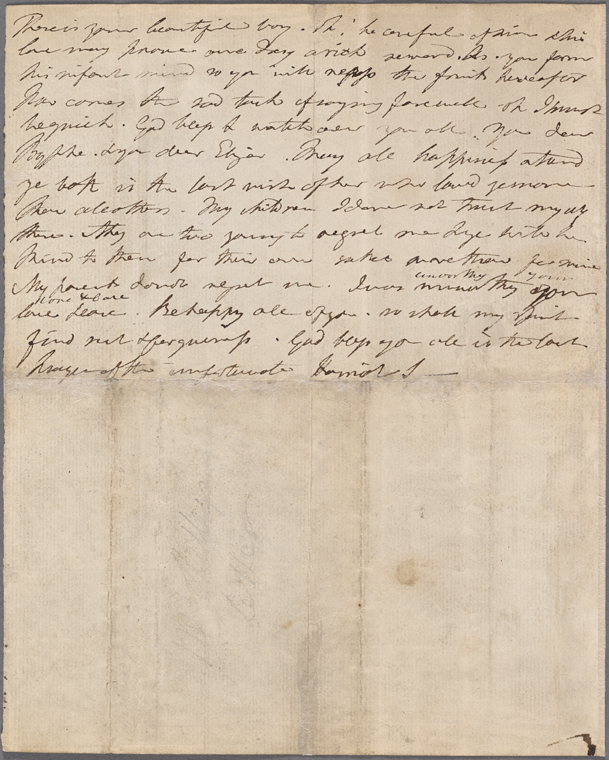 There is your beautiful boy. oh! be careful of him his
love may prove one day a rich reward. As you form
his infant mind so you will reap the fruits hereafter
Now comes the sad task of saying farewell oh I must
be quick. God bless & watch over you all. You dear
Bysshe. & you dear Eliza. May all happiness attend
ye both is the last wish of her who loved ye more
than all others. My children I dare not trust myself
there. They are too young to regret me & ye will be
kind to them for their own sakes more than for mine
My parents do not regret me. I was unworthy your
love & care
love & care. Be happy all of you. so shall my spirit
find rest & forgiveness. God bless you all is the last
prayer of the unfortunate Harriet S—